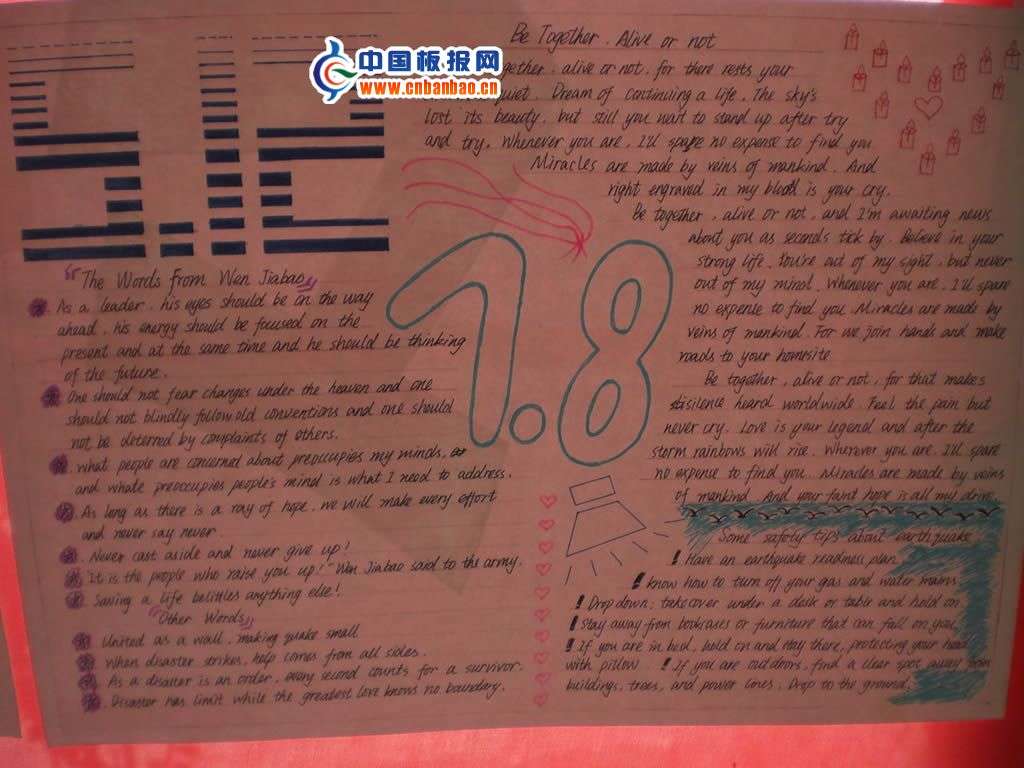 5.12
中国板报网
www.cnbanbao.cn
Be Together, Alive or not
together, alive or not, for there rests your
quiet. Dream of continuing a life. The sky's
lost its beauty, but still you want to stand up after try
and try. Whenever you are, I'll spare no expense to find you
Miracles are made by veins of mankind. And
right engraved in my blood is your cry.
Be together, alive or not, and I'm awaiting news
about you as seconds tick by. Believe in your
strong life. You're out of my sight, but never
out of my mind. Whenever you are, I'll spare
no expense to find you. Miracles are made by
veins of mankind. For we join hands and make
roads to your homesite
Be together, alive or not, for that makes
silence heard worldwide. Feel the pain but
never cry. Love is your legend and after the
storm rainbows will rise. Wherever you are, I'll spare
no expense to find you. Miracles are made by veins
of mankind. And your faint hope is all my drive.
7.8
"The Words from Wen Jiabao"
As a leader, his eyes should be in the way
ahead, his energy should be focused on the
present and at the same time and he should be thinking
of the future.
One should not fear changes under the heaven and one
should not blindly follow old conventions and one should
not be deterred by complaints of others.
What people are concerned about preoccupies my minds,
and whate preoccupies people's mind is what I need to address.
As long as there is a ray of hope, we will make every effort
and never say never.
Never cast aside and never give up!
It is the people who raise you up!" Wen Jiabao said to the army.
Saving a life belittles anything else!
"Other Words"
United as a wall, making quake small
When disaster strikes, help comes from all sides.
As a disaster is an order, every second counts for a survivor.
Disaster has limit while the greatest love knows no boundary.
Some safety tips about earthquake
! Have an earthquake readiness plan.
! know how to turn off your gas and water mains
! Drop down; take cover under a desk or table and hold on
! Stay away from bookcases or furniture that can fall on you
! If you are in bed, hold on and stay there, protecting your head
with pillow. ! If you are outdoors, find a clear spot away from
buildings, trees, and power lines. Drop to the ground.